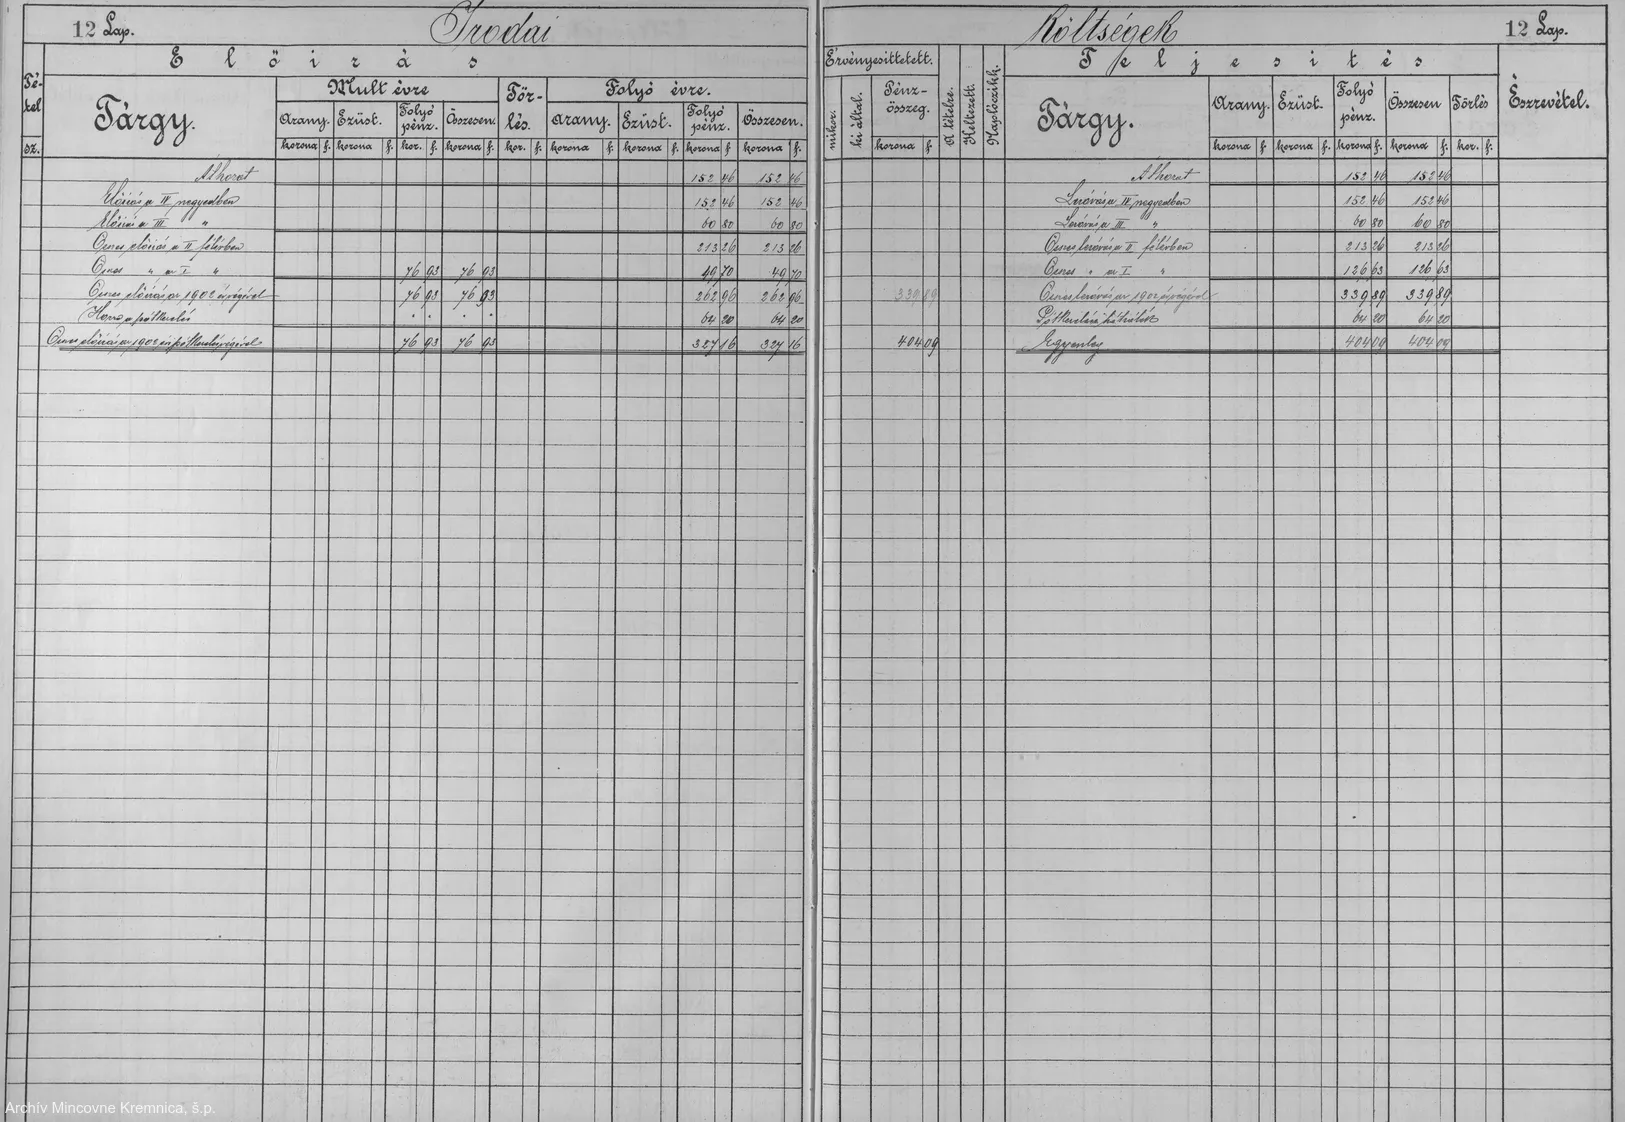 12 Lap. Irodai
Költségek 12 Lap.
Előirás
Té-
tel
sz.
Tárgy.
Mult évre
Tör-
lés.
Folyó évre.
Arany. Ezüst. Folyó pénz. Összesen. Arany. Ezüst. Folyó pénz. Összesen.
korona f. korona f. kor. f. korona f. kor. f. korona f. korona f. korona f. korona f.
Áthozat 152 46 152 46
Előirás a IV negyedben 152 46 152 46
Előirás a III " 60 80 60 80
Összes előirás a II félévben 213 26 213 26
Összes " az I " 76 93 76 93 49 70 49 70
Összes előirás az 1902 év végével 76 93 76 93 262 96 262 96
Hozzá a pótkezelés " " " " 64 20 64 20
Összes előirás az 1902 évi pótkezelés végével 76 93 76 93 327 16 327 16
Érvényesittetett.
mikor. ki által. Pénz-összeg. A tételre. Keltezett. Naplóczikk.
korona f
Teljesités
Tárgy.
Arany. Ezüst. Folyó pénz. Összesen Törlés Észrevétel.
korona f korona f. korona f. korona f. kor. f.
Áthozat 152 46 152 46
Lerovás a IV negyedben 152 46 152 46
Lerovás a III " 60 80 60 80
Összes lerovás a II félévben 213 26 213 26
Összes " az I " 126 63 126 63
339 89 Összes lerovás az 1902 év végével 339 89 339 89
Pótkezelési 64 20 64 20
404 09 Egyenleg 404 09 404 09
Archív Mincovne Kremnica, š.p.